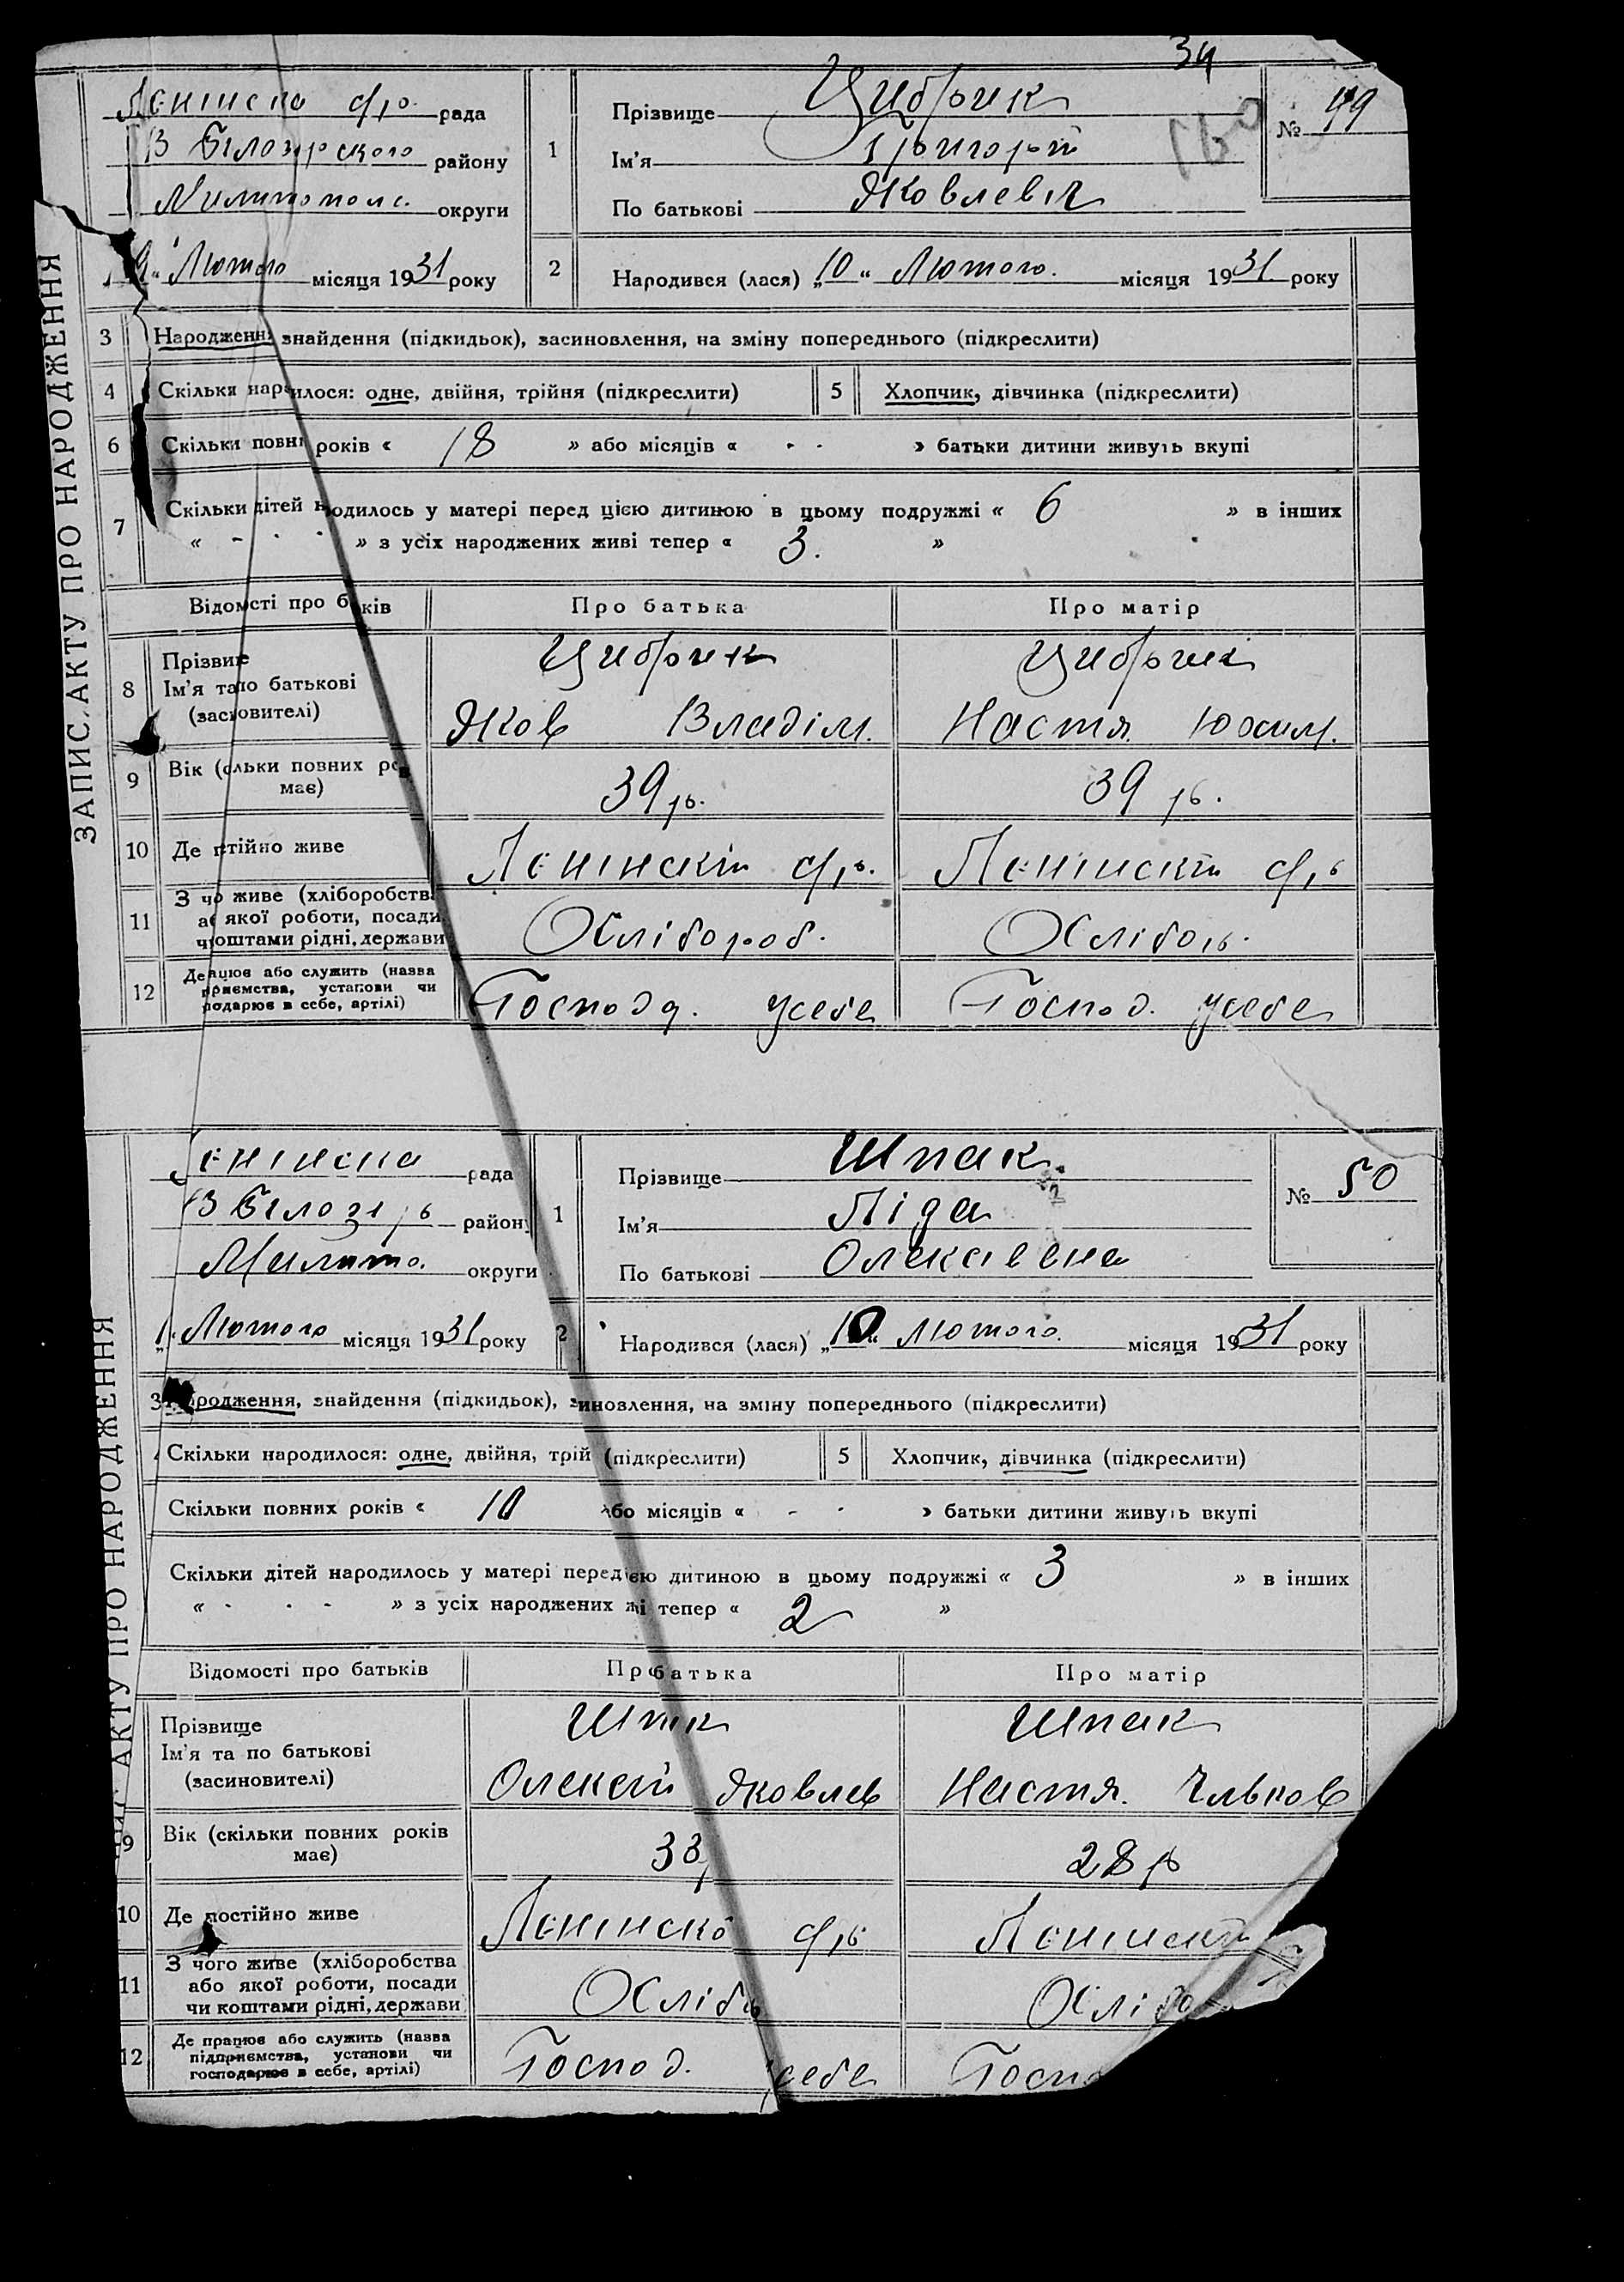 34
Ленінска с/р. рада
В Білозірского району
Милитополс. округи
Люто­го місяця 1931 року
1
Прізвище Цибрик
Ім'я Григорій
По батькові Яковлевіч
№ 49
2
Народився (лася) „10“ Лютого. місяця 1931 року
ЗАПИС АКТУ ПРО НАРОДЖЕННЯ
3 Народження знайдення (підкидьок), засиновлення, на зміну попереднього (підкреслити)
4 Скільки нар илося: одне, двійня, трійня (підкреслити) 5 Хлопчик, дівчинка (підкреслити)
6 Скільки повн років « 18 » або місяців « - - » батьки дитини живуть вкупі
7 Скільки дітей н одилось у матері перед цією дитиною в цьому подружжі « 6 » в інших
« - - - » з усіх народжених живі тепер « 3. »
Відомсті про б ків Про батька Про матір
8 Прізвиє
Ім'я та о батькові
(зас овителі)
Цибрик
Яков Владім.
Цибрик
Настя Юхим.
9 Вік (ольки повних ро в
має)
39 р. 39 р.
10 Де п тійно живе Ленінскій с/р. Ленінскій с/р
11 З чо живе (хліборобства
а якої роботи, посади
ч оштами рідні, держави
Хлібороб. Хлібор.
12 Де ацює або служить (назва
приємства, установи чи
подарює в себе, артілі)
Господа. усебе Господ. усебе
енінска рада
В Білозір району
Милито. округи
Лютого місяця 1931 року
1
Прізвище Шпак
Ім'я Ліда
По батькові Олексівна
№ 50
2
Народився (лася) „10“ Лютого. місяця 1931 року
АКТУ ПРО НАРОДЖЕННЯ
3 родження, знайдення (підкидьок), з иновлення, на зміну попереднього (підкреслити)
Скільки народилося: одне, двійня, трій (підкреслити) 5 Хлопчик, дівчинка (підкреслити)
Скільки повних років « 10 або місяців « - - » батьки дитини живуть вкупі
Скільки дітей народилось у матері перед ією дитиною в цьому подружжі « 3 » в інших
« - - - » з усіх народжених жі тепер « 2 »
Відомості про батьків Про батька Про матір
Прізвище
Ім'я та по батькові
(засиновителі)
Шпак
Олексій Яковлев
Шпак
Настя.
9 Вік (скільки повних років
має)
33 28 р
10 Де постійно живе Ленінскі с/р. Ленінскі
11 З чого живе (хліборобства
або якої роботи, посади
чи коштами рідні, держави
Хлібр Хлібо
12 Де працює або служить (назва
підприємства, установи чи
господарює в себе, артілі)
Господ. усебе Госпо